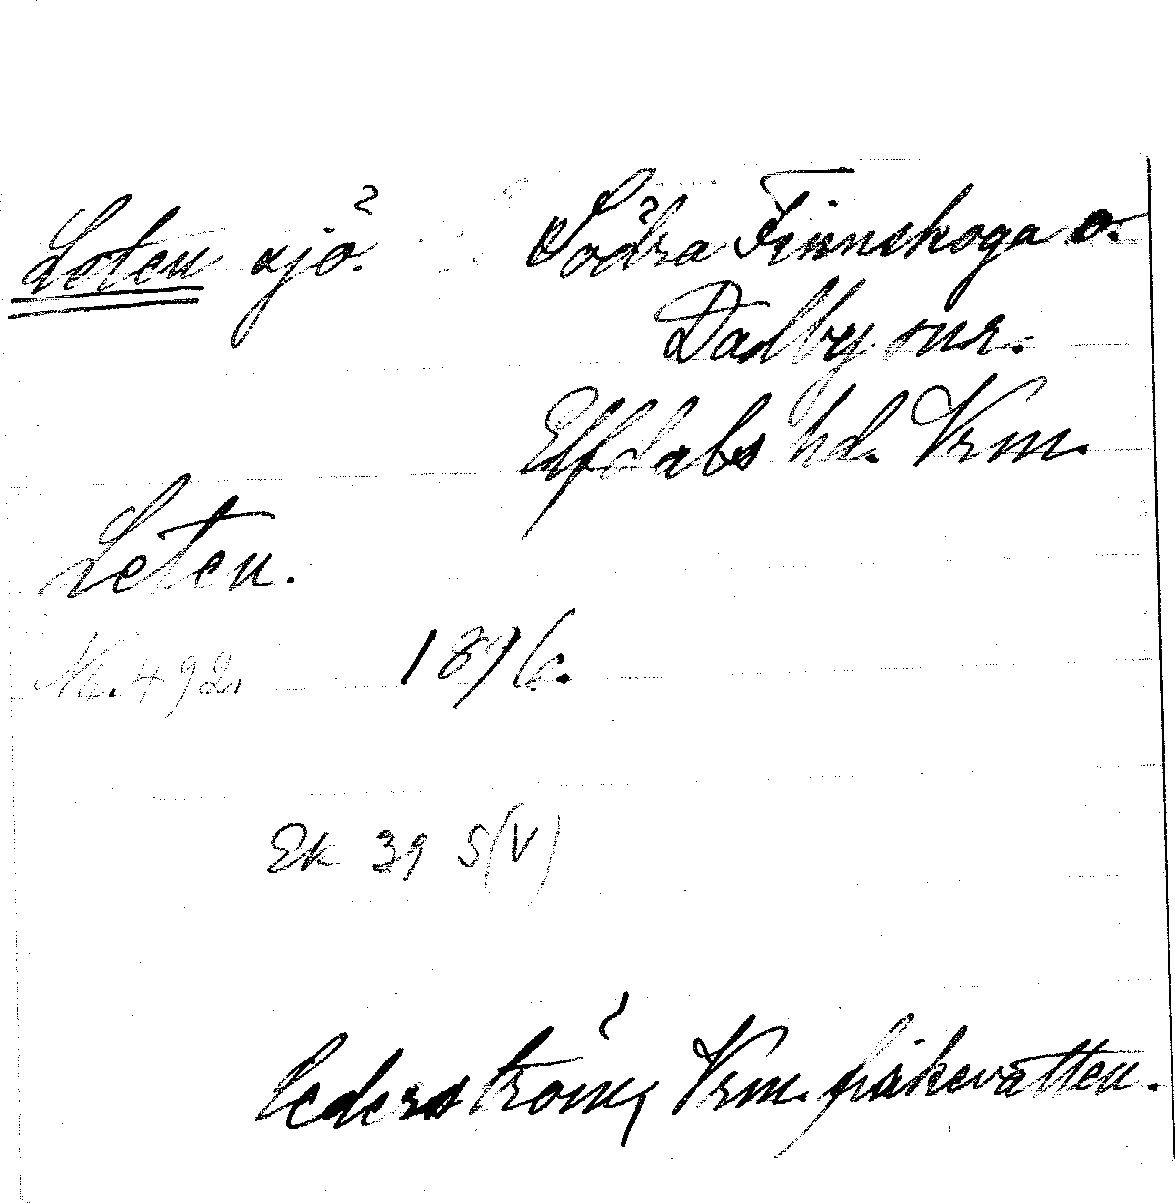 Leten sjö. Södra Finnskoga o.
Dalby snr.
Elfdals hd. Vrm.
Leten.
Nr. 492. 1896.
Ek 39 S(V)
Cederström, Vrm. fiskevatten.